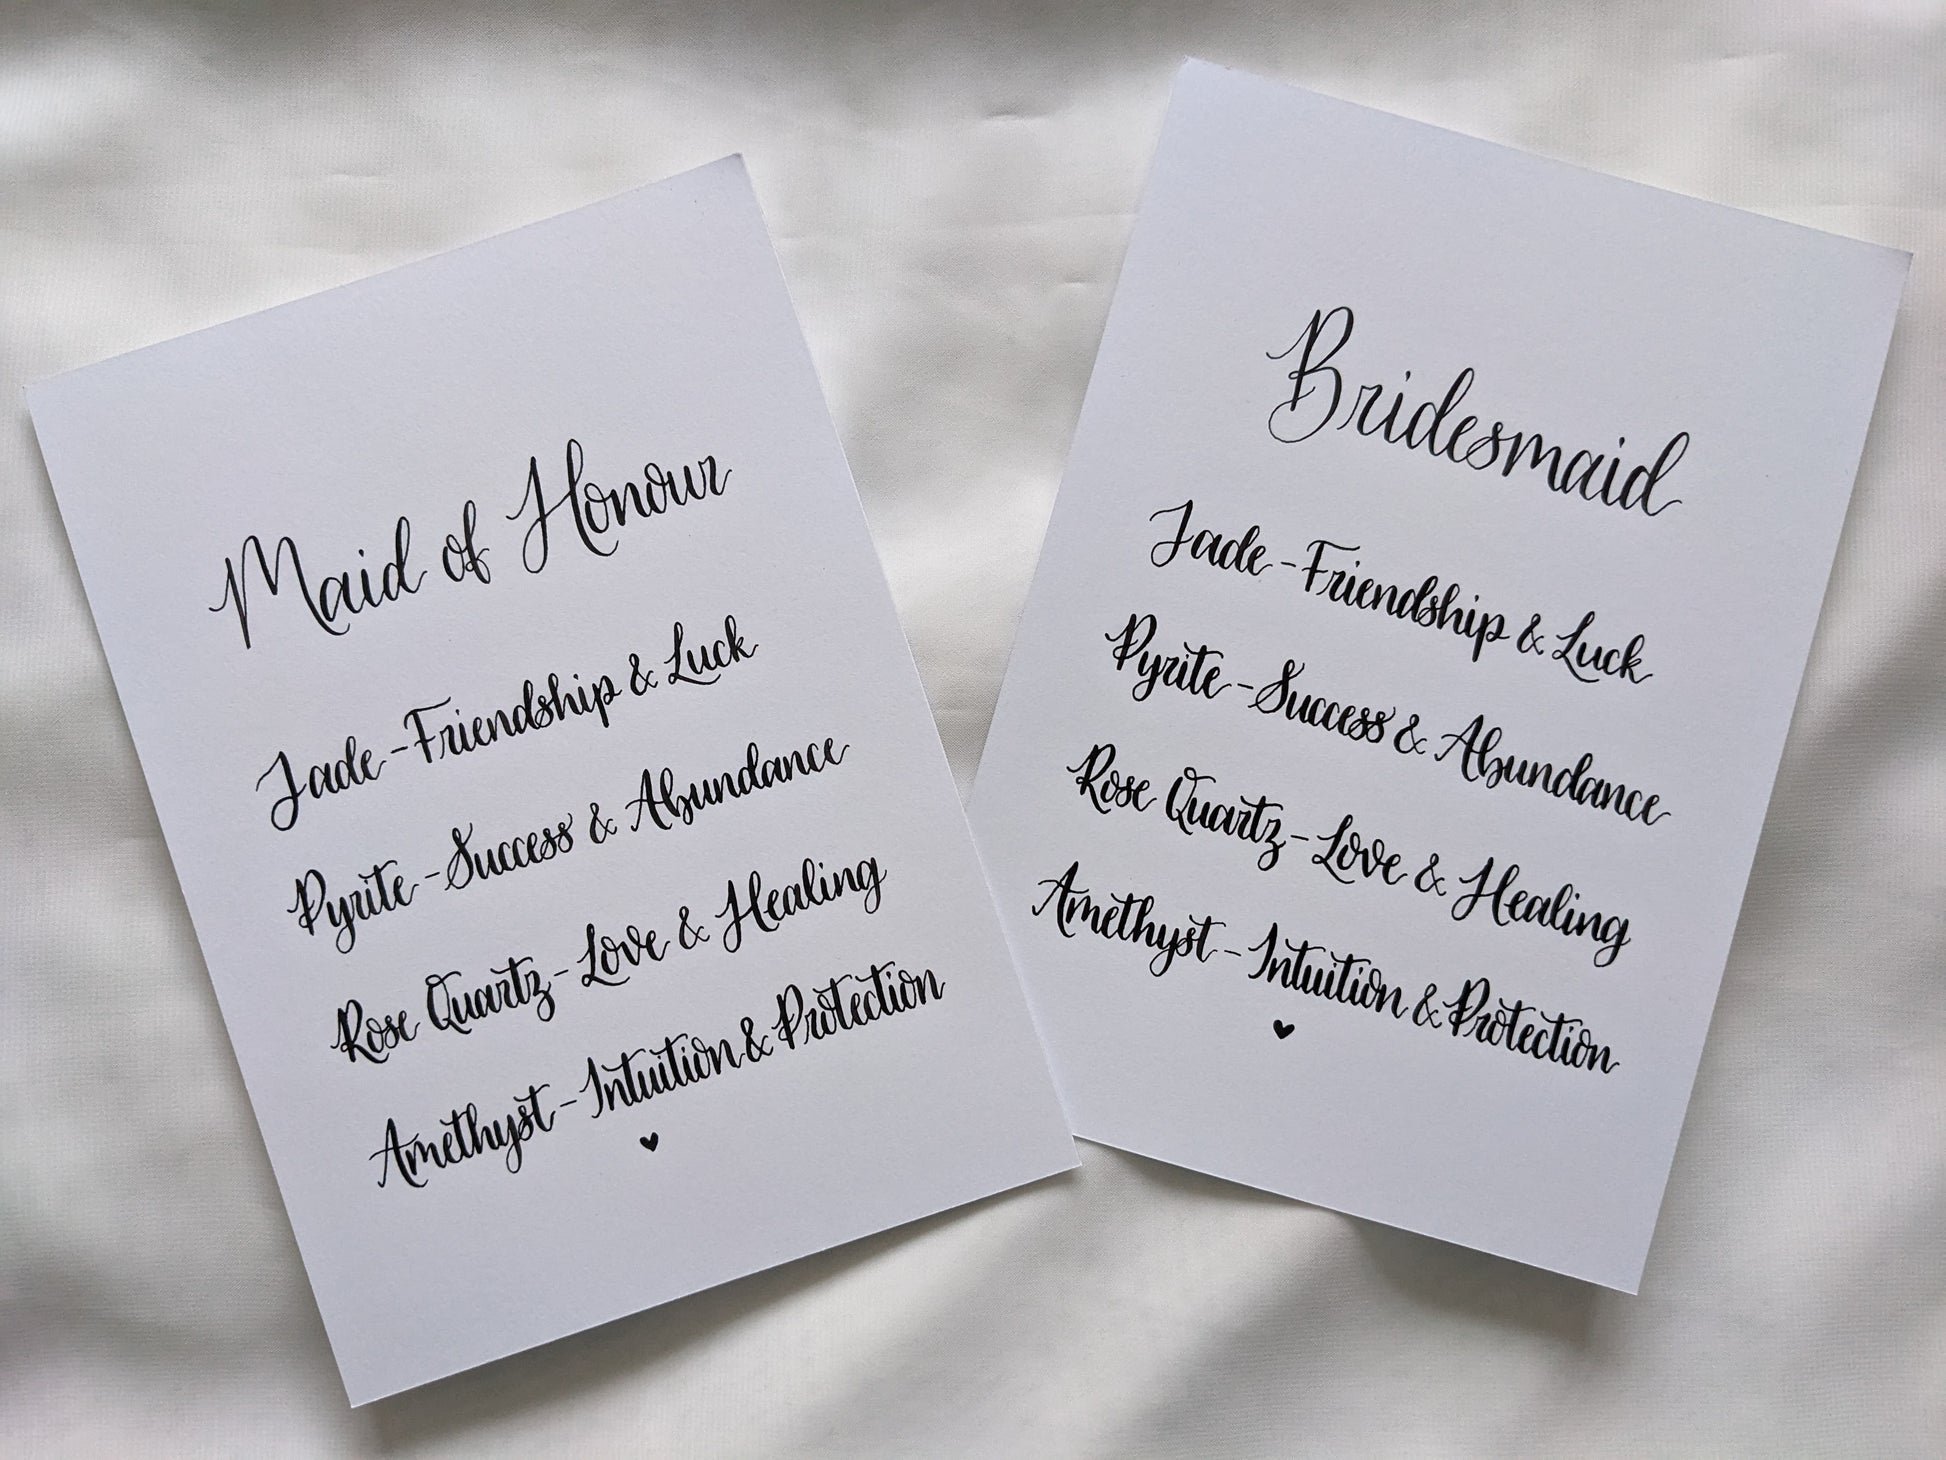 Maid of Honour
Jade - Friendship & Luck
Pyrite - Success & Abundance
Rose Quartz - Love & Healing
Amethyst - Intuition & Protection
Bridesmaid
Jade - Friendship & Luck
Pyrite - Success & Abundance
Rose Quartz - Love & Healing
Amethyst - Intuition & Protection